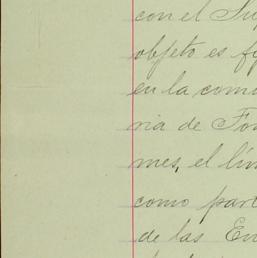 con el Sup
objeto es fi
en la comi
ria de Fom
mes, el lím
como part
de las En